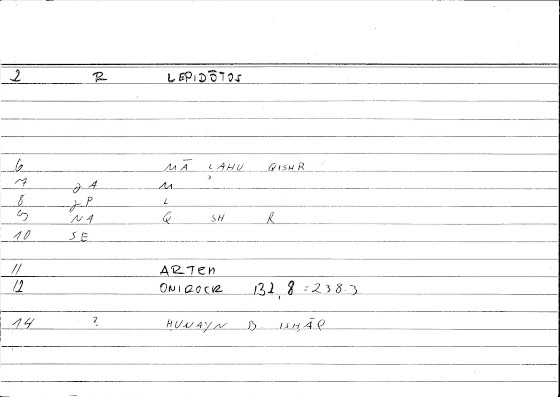 2 R LEPIDŌTOS
6 MĀ LAHU QISHR
7 JA M
8 JP L
9 NA Q SH R
10 SE
11 ARTEM
12 ONIROCR 132,8 = 238.3
14 ? ḤUNAYN B. ISḤĀQ